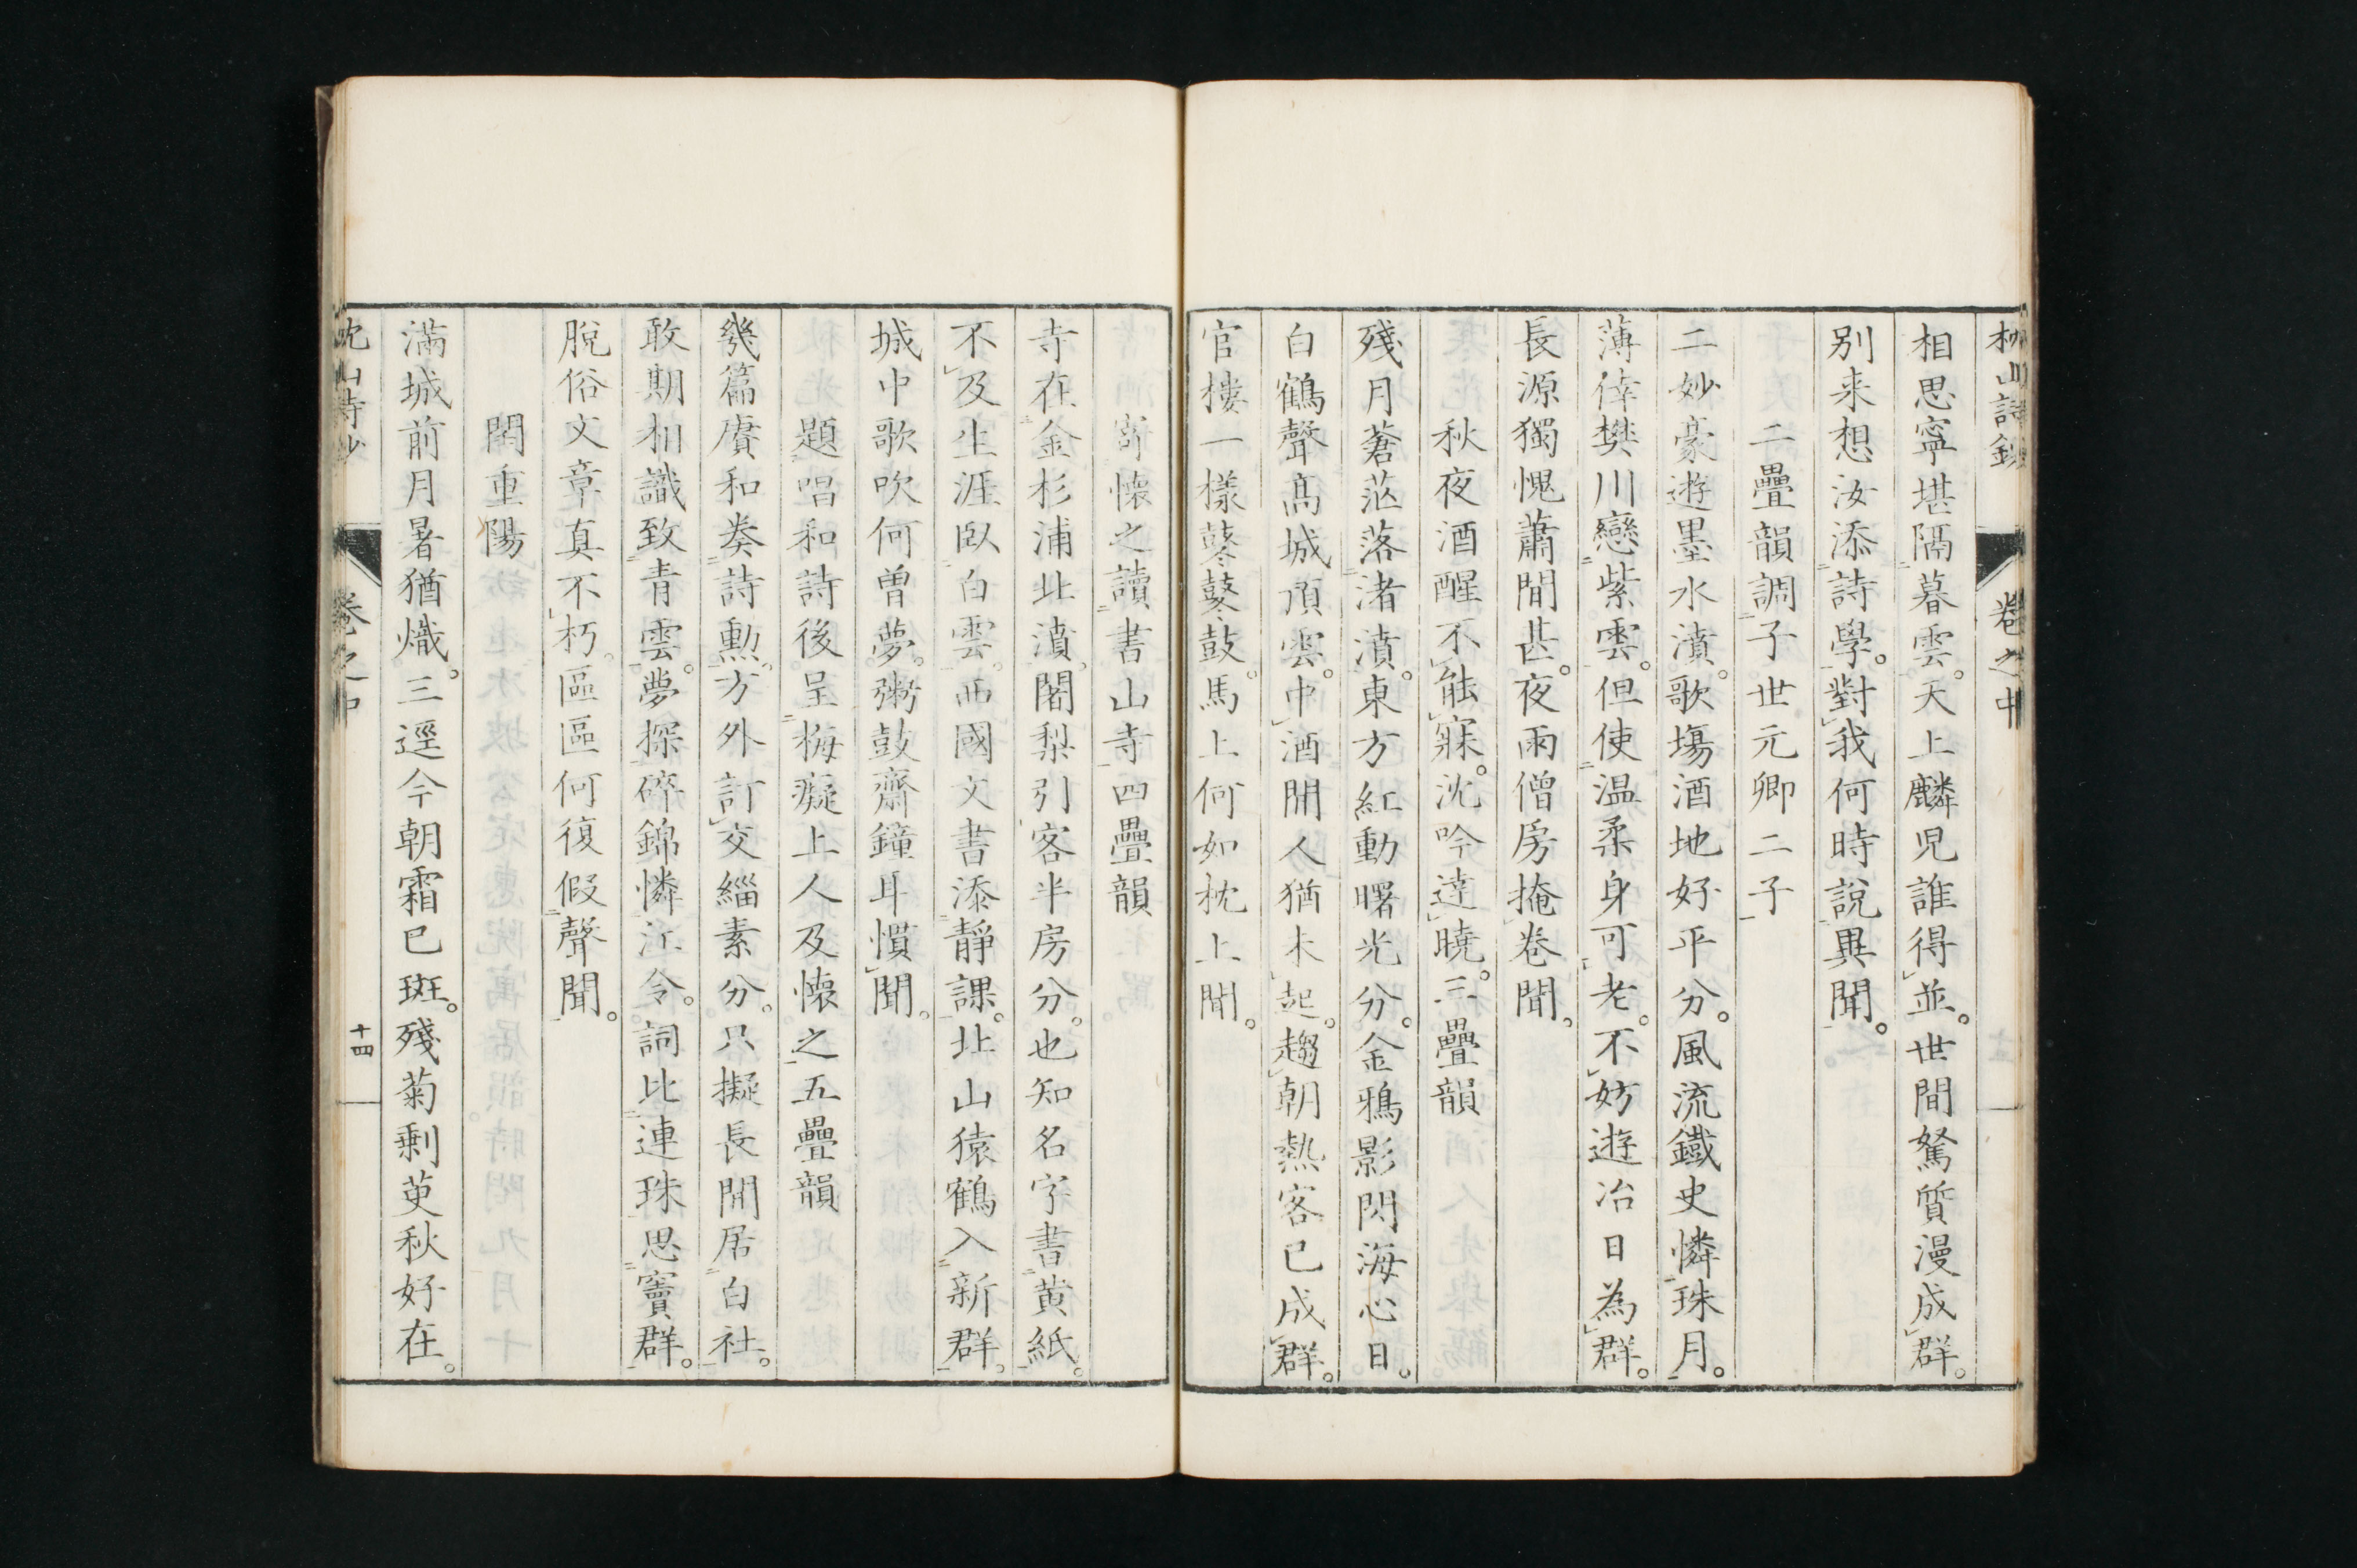 枕山詩鈔 卷之中
相思寧堪隔暮雲。天上麟児誰得並。世間駑質漫成群。
別来想汝添詩學。對我何時説異聞。
二疊韻調子世元卿二子
二妙豪遊墨水濆。歌塲酒地好平分。風流鐵史憐珠月。
薄倖樊川戀紫雲。但使温柔身可老。不妨遊冶日為群。
長源獨愧蕭閒甚。夜雨僧房掩卷聞。
秋夜酒醒不能寐。沈吟達曉。三疊韻
殘月蒼茫落渚濆。東方紅動曙光分。金鴉影閃海心日。
白鶴聲高城頂雲。中酒閒人猶未起。趨朝熱客已成群。
官樓一樣鼕鼕鼓。馬上何如枕上聞。
寄懐之讀書山寺四疊韻
寺在金杉浦北濆。闍梨引客半房分。也知名字書黄紙。
不及生涯臥白雲。西國文書添靜課。北山猿鶴入新群。
城中歌吹何曽夢。粥鼓齋鐘耳慣聞。
題唱和詩後呈梅癡上人及懐之五疊韻
幾篇賡和奏詩勲。方外訂交緇素分。只擬長閒居白社。
敢期相識致青雲。夢探碎錦憐江令。詞比連珠思竇群。
脫俗文章真不朽。區區何復假聲聞。
閏重陽
滿城前月暑猶熾。三逕今朝霜已斑。殘菊剩萸秋好在。
枕山詩鈔 卷之中 十四